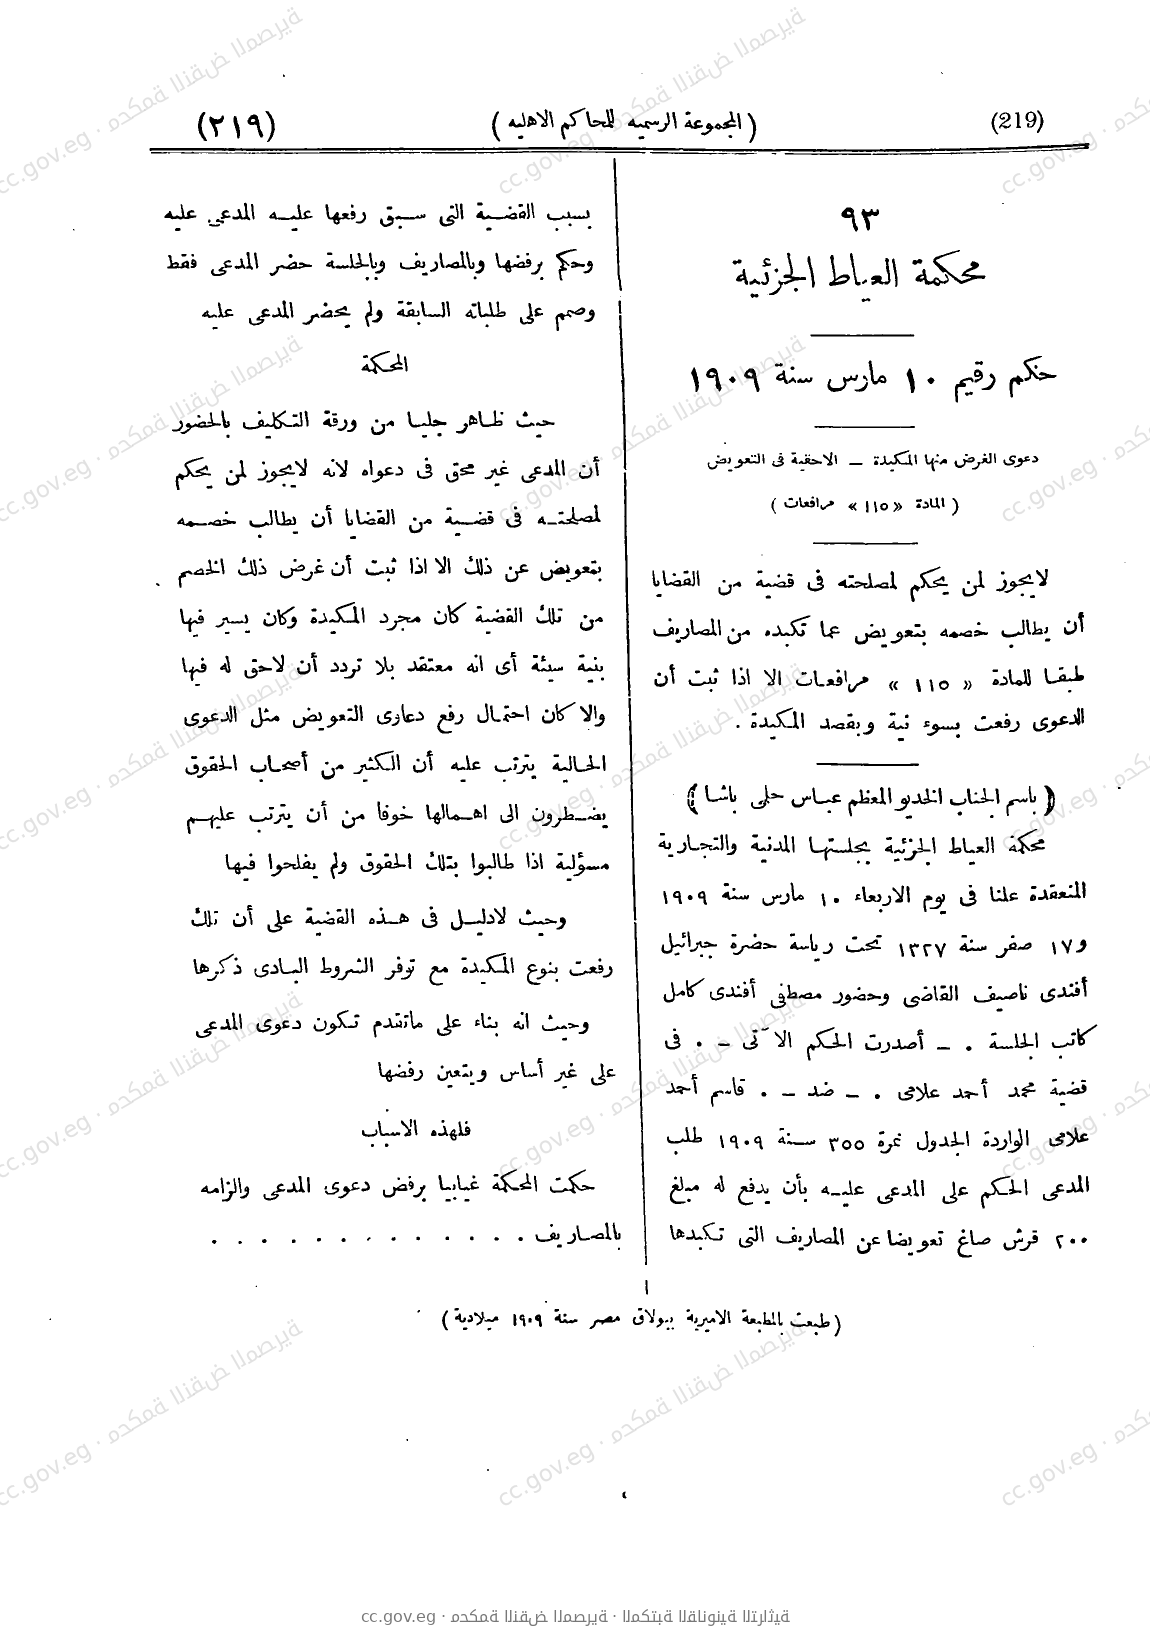 (219) (المجموعة الرسميه للمحاكم الاهليه) (٢١٩)
٩٣
محكمة العياط الجزئية
حكم رقيم ١٠ مارس سنة ١٩٠٩
دعوى الغرض منها المكيدة – الاحقية فى التعويض
(المادة «١١٥» مرافعات)
لايجوز لمن يحكم لمصلحته فى قضية من القضايا
أن يطالب خصمه بتعويض عما تكبده من المصاريف
طبقا للمادة «١١٥» مرافعات الا اذا ثبت أن
الدعوى رفعت بسوء نية وبقصد المكيدة .
(باسم الجناب الخديو المعظم عباس حلمى باشا)
محكمة العياط الجزئية بجلستها المدنية والتجارية
المنعقدة علنا فى يوم الاربعاء ١٠ مارس سنة ١٩٠٩
و١٧ صفر سنة ١٣٢٧ تحت رياسة حضرة جبرائيل
أفندى ناصيف القاضى وحضور مصطفى أفندى كامل
كاتب الجلسة . – أصدرت الحكم الآتى – . فى
قضية محمد أحمد علامى . – ضد – . قاسم أحمد
علامى الواردة الجدول نمرة ٣٥٥ سنة ١٩٠٩ طلب
المدعى الحكم على المدعى عليه بأن يدفع له مبلغ
٢٠٠ قرش صاغ تعويضا عن المصاريف التى تكبدها
بسبب القضية التى سبق رفعها عليه المدعى عليه
وحكم برفضها وبالمصاريف وبالجلسة حضر المدعى فقط
وصمم على طلباته السابقة ولم يحضر المدعى عليه
المحكمة
حيث ظاهر جليا من ورقة التكليف بالحضور
أن المدعى غير محق فى دعواه لانه لايجوز لمن يحكم
لمصلحته فى قضية من القضايا أن يطالب خصمه
بتعويض عن ذلك الا اذا ثبت أن غرض ذلك الخصم
من تلك القضية كان مجرد المكيدة وكان يسير فيها
بنية سيئة أى انه معتقد بلا تردد أن لاحق له فيها
والا كان احتمال رفع دعاوى التعويض مثل الدعوى
الحالية يترتب عليه أن الكثير من أصحاب الحقوق
يضطرون الى اهمالها خوفا من أن يترتب عليهم
مسؤلية اذا طالبوا بتلك الحقوق ولم يفلحوا فيها
وحيث لادليل فى هذه القضية على أن تلك
رفعت بنوع المكيدة مع توفر الشروط البادى ذكرها
وحيث انه بناء على ماتقدم تكون دعوى المدعى
على غير أساس ويتعين رفضها
فلهذه الاسباب
حكمت المحكمة غيابيا برفض دعوى المدعى والزامه
بالمصاريف . . . . . . . . . . . . .
(طبعت بالمطبعة الاميرية ببولاق مصر سنة ١٩٠٩ ميلادية)
cc.gov.eg · محكمة النقض المصرية · المكتبة القانونية التراثية